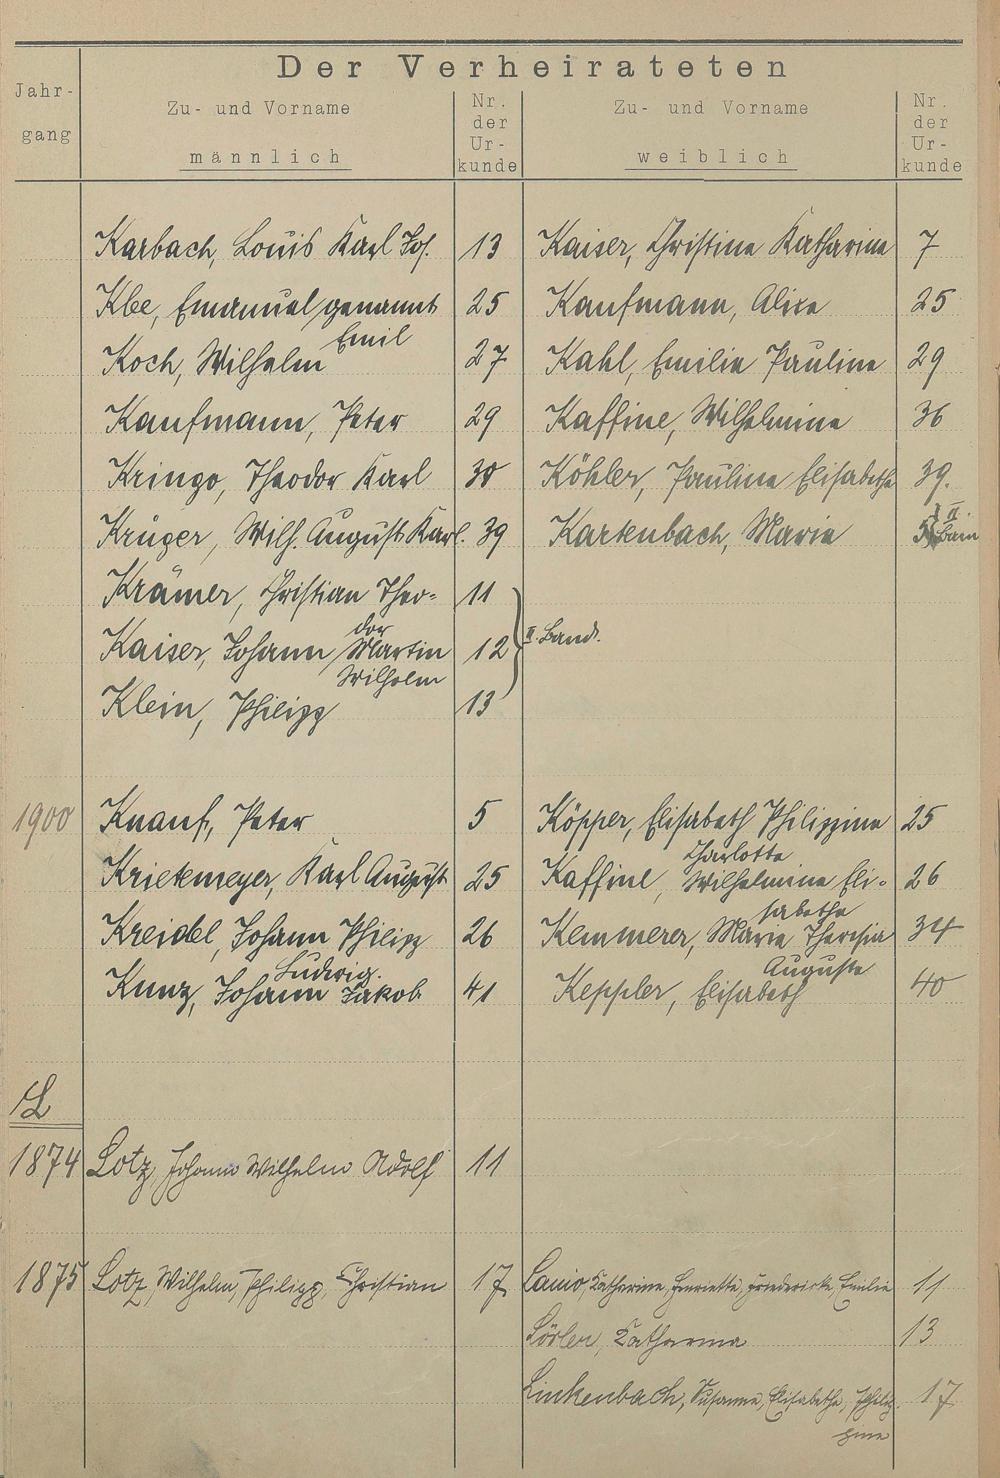 Der Verheirateten
Jahr-
gang
Zu- und Vorname
männlich
Nr.
der
Ur-
kunde
Zu- und Vorname
weiblich
Nr.
der
Ur-
kunde
Karbach, Louis Karl Jos. 13 Kaiser, Christine Katharine 7
Klee, Emanuel genannt 25 Kaufmann, Alice 25
Emil
Koch, Wilhelm 27 Kahl, Emilie Pauline 29
Kaufmann, Peter 29 Kaffine, Wilhelmine 36
Kringe, Theodor Karl 30 Köhler, Pauline Elisabethe 39.
Krüger, Wilh. August Karl. 39 Kartenbach, Marie 5 II.
Krämer, Christian Theo= 11
dor
Kaiser, Johann Martin 12 II. Band.
Wilhelm
Klein, Philipp 13
1900 Knauf, Peter 5 Köpper, Elisabeth Philippine 25
Charlotte
Krietemeyer, Karl August 25 Kaffine, Wilhelmine Eli= 26
sabethe
Kreidel, Johann Philipp 26 Kemmerer, Marie Theresia 34
Ludwig. Auguste
Kunz, Johann Jakob 41 Keppler, Elisabeth 40
L
1874 Lotz, Johann Wilhelm Adolf 11
1875 Lotz, Wilhelm, Philipp, Christian 17 Lanio, Katharine, Henriette, Friedericke, Emilie 11
Katharina 13
Linkenbach, Susanne, Elisabethe, Philip= 17
pine